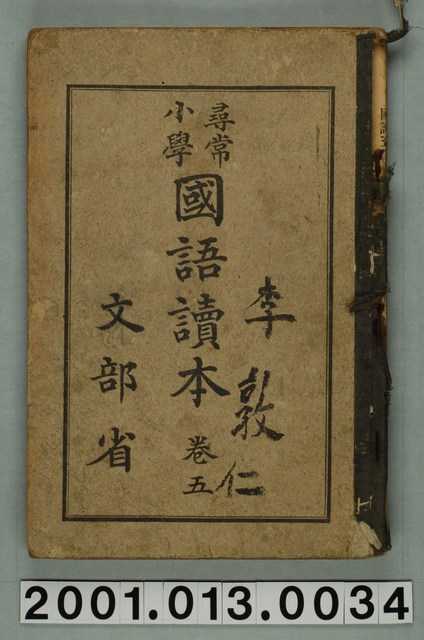 尋常
小學
國語讀本
卷五
文部省
李敦仁
2001.013.0034